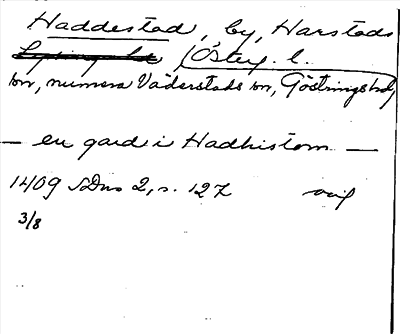 Haddestad, by, Harstads
(Österg. l.
sn, numera Väderstads sn, Göstrings hd,
— en gard i Hadhistom —
1409 SDns 2, s. 127 avs
3/8